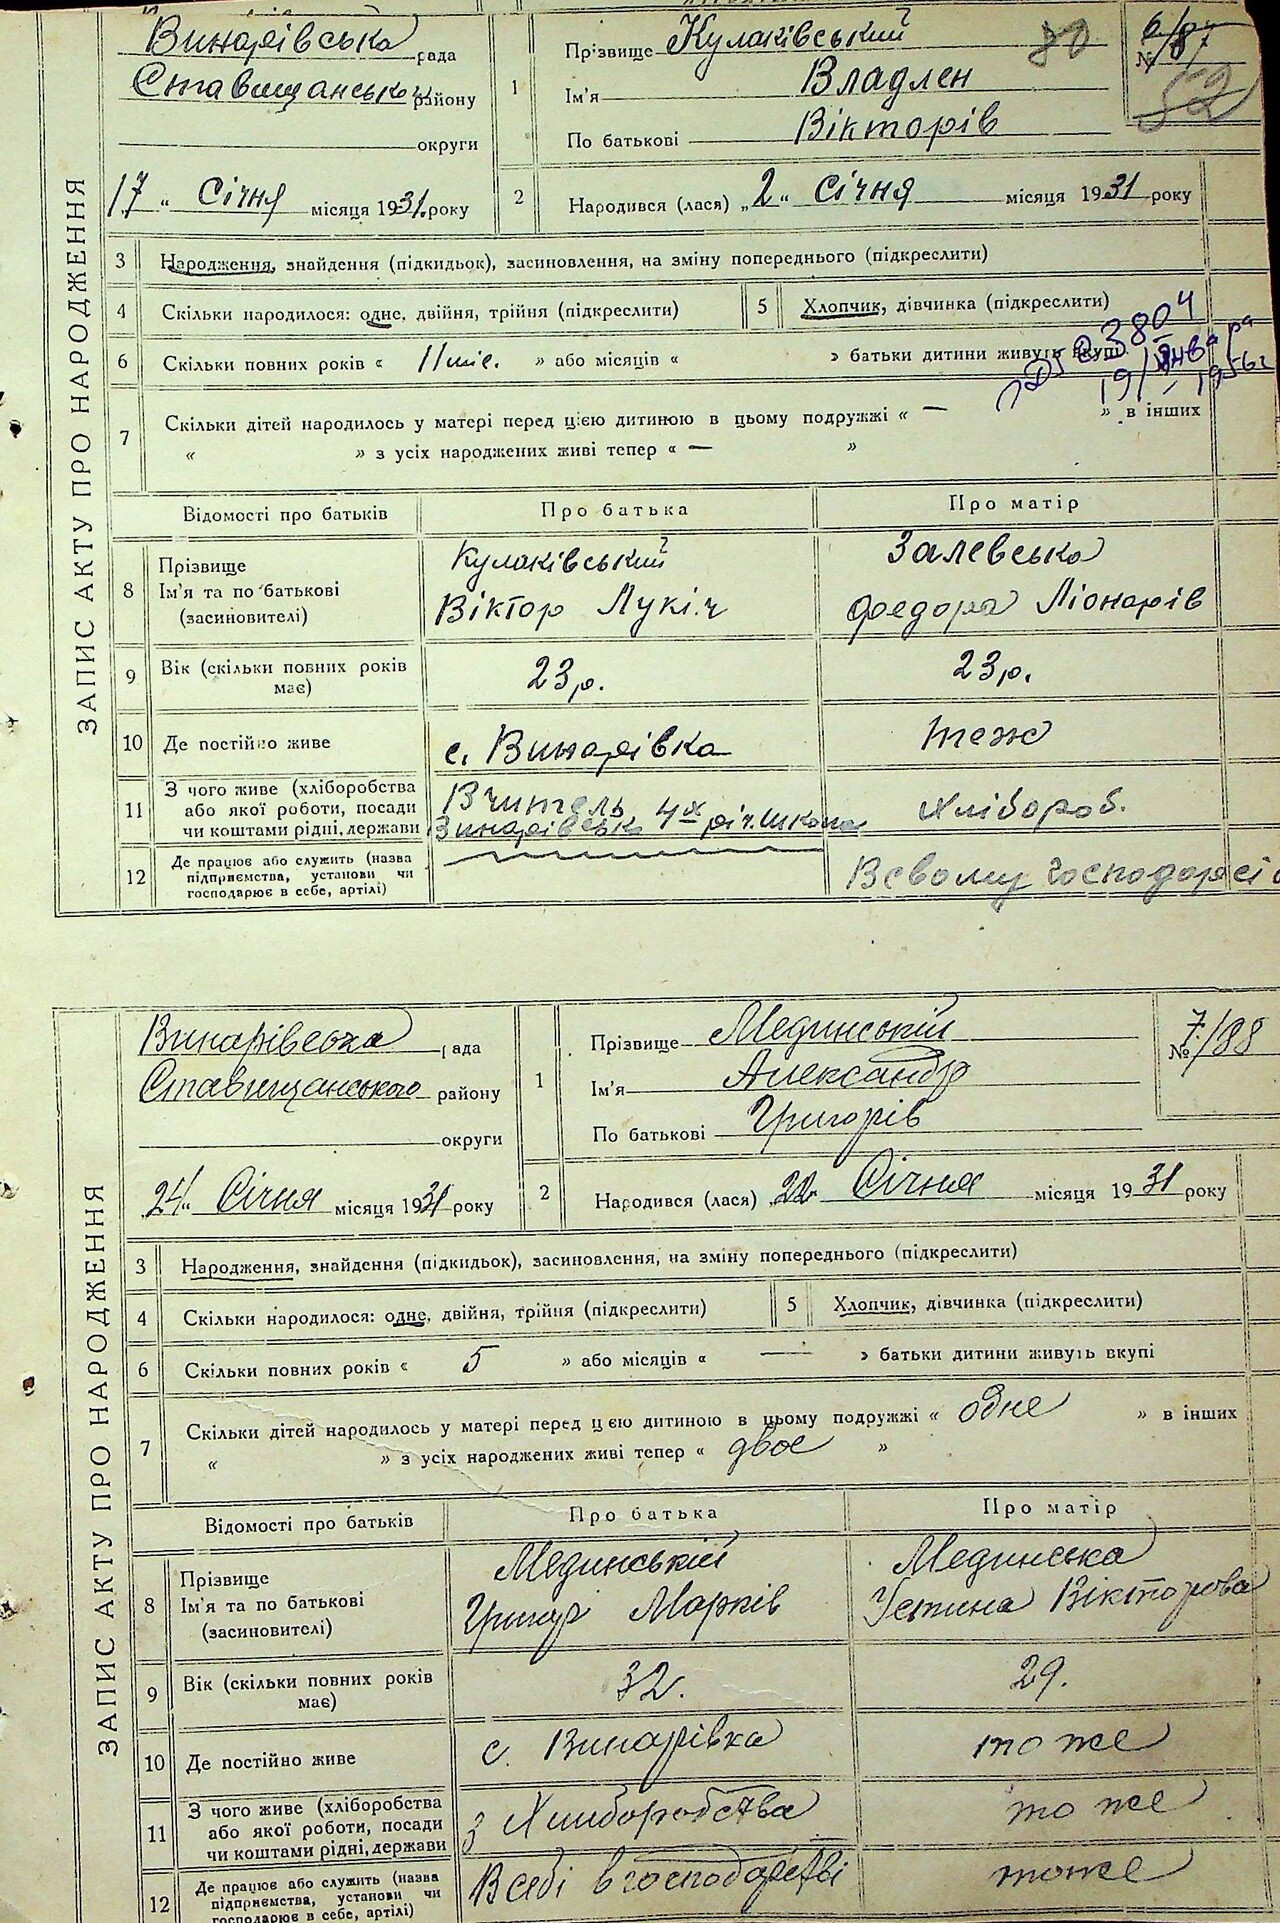 ЗАПИС АКТУ ПРО НАРОДЖЕННЯ
Винарівська рада
Ставищанськ району
округи
17 " Січня місяця 1931 року
1 Прізвище Кулаківський
Ім'я Владлен
По батькові Вікторів
80
№ 6/87
52
2 Народився (лася) „2" Січня місяця 1931 року
3 Народження, знайдення (підкидьок), засиновлення, на зміну попереднього (підкреслити)
4 Скільки народилося: одне, двійня, трійня (підкреслити) 5 Хлопчик, дівчинка (підкреслити)
6 Скільки повних років « 11 міс. » або місяців « » батьки дитини живуть вкупі
23804
19/ 1956
7 Скільки дітей народилось у матері перед цією дитиною в цьому подружжі « — » в інших
« » з усіх народжених живі тепер « — »
Відомості про батьків Про батька Про матір
8 Прізвище Кулаківський Залевська
Ім'я та по батькові Віктор Лукіч Федора Ліонарів
(засиновителі)
9 Вік (скільки повних років має) 23 р. 23 р.
10 Де постійно живе с. Винарівка теж
11 З чого живе (хліборобства Вчитель Хлібороб.
або якої роботи, посади
чи коштами рідні, держави Винарівськ 4х річ. школа
12 Де працює або служить (назва
підприємства, установи чи Всвому господарсі
господарює в себе, артілі)
ЗАПИС АКТУ ПРО НАРОДЖЕННЯ
Винарівська рада
Ставищанського району
округи
24 " Січня місяця 1931 року
1 Прізвище Мединській
Ім'я Александр
По батькові Григорів
№ 7/88
2 Народився (лася) „22 Січня місяця 1931 року
3 Народження, знайдення (підкидьок), засиновлення, на зміну попереднього (підкреслити)
4 Скільки народилося: одне, двійня, трійня (підкреслити) 5 Хлопчик, дівчинка (підкреслити)
6 Скільки повних років « 5 » або місяців « — » батьки дитини живуть вкупі
7 Скільки дітей народилось у матері перед цією дитиною в цьому подружжі « одне » в інших
« » з усіх народжених живі тепер « двоє »
Відомості про батьків Про батька Про матір
8 Прізвище Мединській Мединська
Ім'я та по батькові Григор Марків Устина Вікторова
(засиновителі)
9 Вік (скільки повних років має) 32. 29.
10 Де постійно живе с. Винарівка то же
11 З чого живе (хліборобства
або якої роботи, посади з Хлиборобства то же
чи коштами рідні, держави
12 Де працює або служить (назва
підприємства, установи чи В себі в господарстві тоже
господарює в себе, артілі)